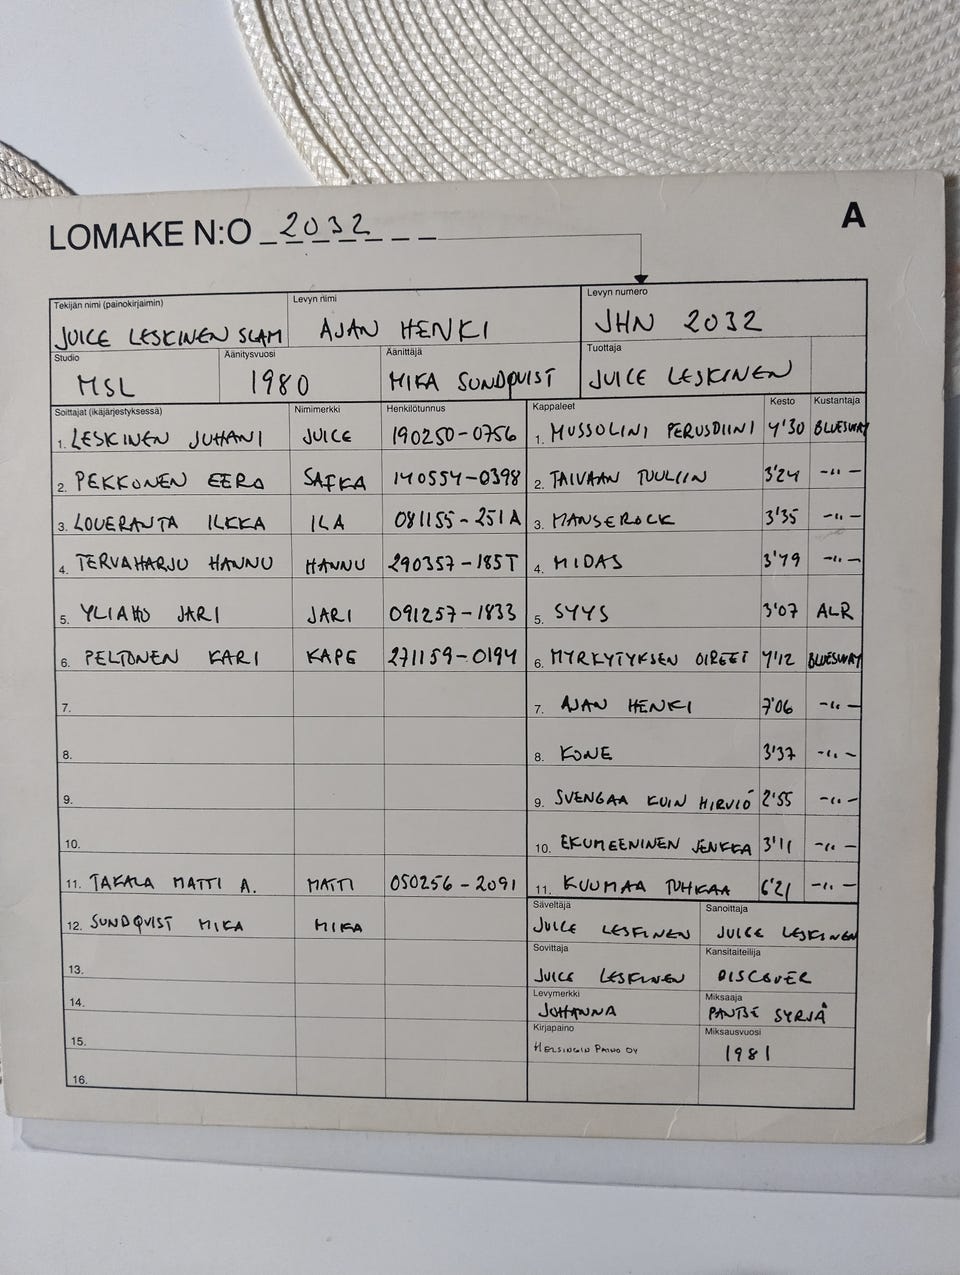 LOMAKE N:O 2032
A
Tekijän nimi (painokirjaimin) Levyn nimi Levyn numero
JUICE LESKINEN SLAM AJAN HENKI JHN 2032
Studio Äänitysvuosi Äänittäjä Tuottaja
MSL 1980 MIKA SUNDQVIST JUICE LESKINEN
Soittajat (ikäjärjestyksessä) Nimimerkki Henkilötunnus Kappaleet Kesto Kustantaja
1. LESKINEN JUHANI JUICE 190250-0756 1. MUSSOLINI PERUSDIINI 4'30 BLUESWAY
2. PEKKONEN EERO SAFKA 140554-0398 2. TAIVAAN TUULIIN 3'24 -"-
3. LOUERANTA ILKKA ILA 081155-251A 3. MANSEROCK 3'35 -"-
4. TERVAHARJU HANNU HANNU 290357-185T 4. MIDAS 3'49 -"-
5. YLIAHO JARI JARI 091257-1833 5. SYYS 3'07 ALR
6. PELTONEN KARI KAPE 271159-0194 6. MYRKYTYKSEN OIREET 4'12 BLUESWAY
7. 7. AJAN HENKI 7'06 -"-
8. 8. KONE 3'37 -"-
9. 9. SVENGAA KUIN HIRVIÖ 2'55 -"-
10. 10. EKUMEENINEN JENKKA 3'11 -"-
11. TAKALA MATTI A. MATTI 050256-2091 11. KUUMAA TUHKAA 6'21 -"-
12. SUNDQVIST MIKA MIKA
13.
14.
15.
16.
Säveltäjä Sanoittaja
JUICE LESKINEN JUICE LESKINEN
Sovittaja Kansitaiteilija
JUICE LESKINEN DISCOVER
Levymerkki Miksaaja
JOHANNA PANTSE SYRJÄ
Kirjapaino Miksausvuosi
HELSINGIN PAINO OY 1981